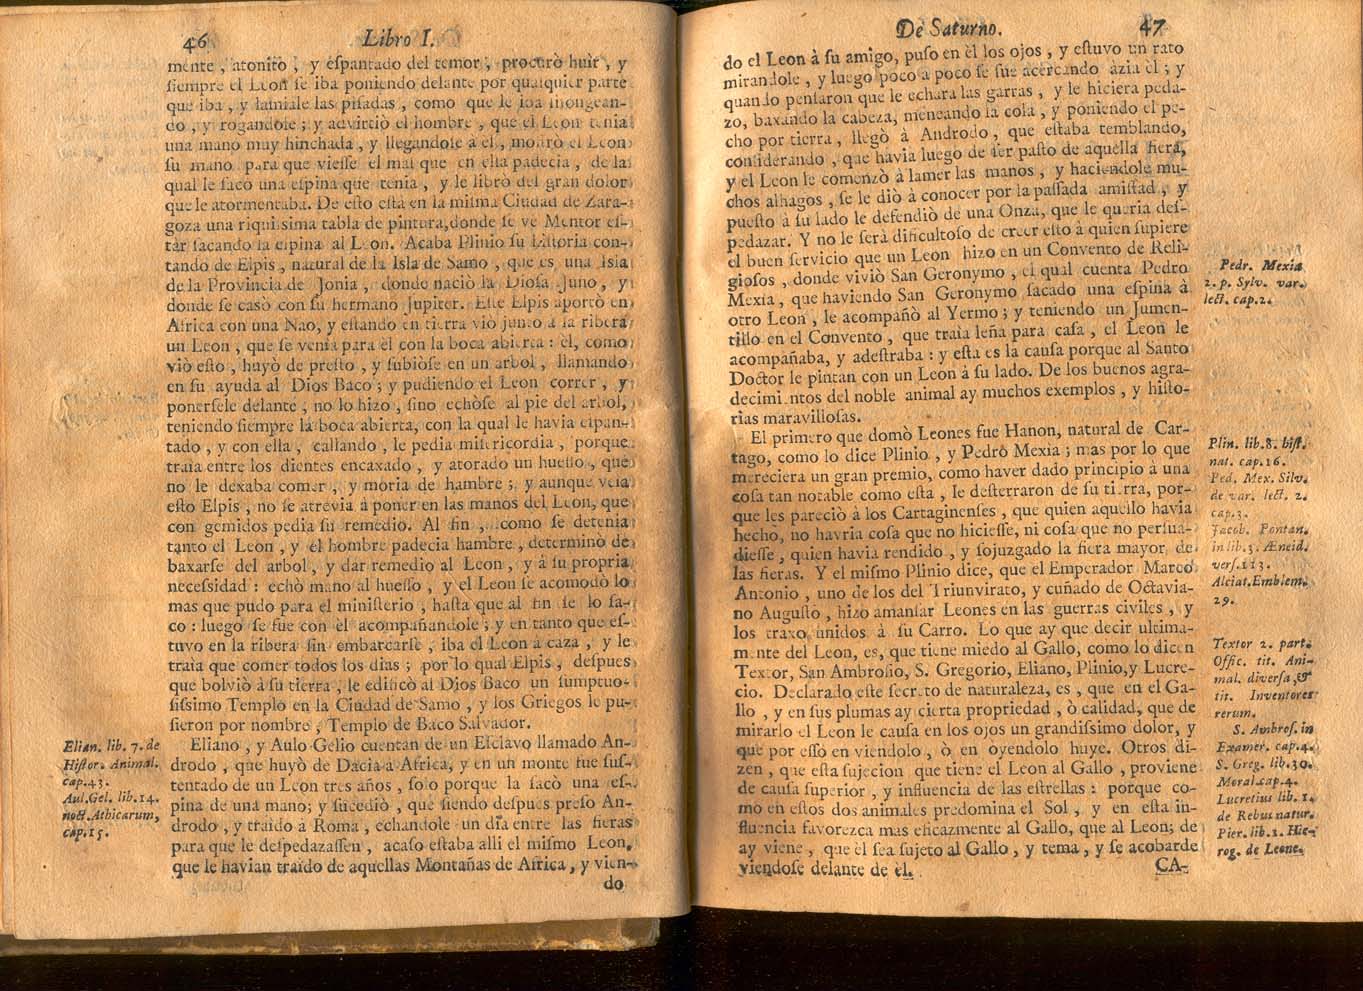 46 Libro I.
mente, atonito, y espantado del temor, procurò huìr, y
siempre el Leon se iba poniendo delante por qualquier parte
que iba, y lamiale las pisadas, como que le iba lisongean-
do, y rogandole; y advirtiò el hombre, que el Leon tenia
una mano muy hinchada, y llegandole à el, mostrò el Leon
su mano para que viesse el mal que en ella padecia, de la
qual le sacò una espina que tenia, y le librò del gran dolor
que le atormentaba. De esto està en la misma Ciudad de Zara-
goza una riquissima tabla de pintura, donde se ve Mentor es-
tàr sacando la espina al Leon. Acaba Plinio su Historia con-
tando de Elpis, natural de la Isla de Samo, que es una Isla
de la Provincia de Jonia, donde naciò la Diosa Juno, y
donde se casò con su hermano Jupiter. Este Elpis aportò en
Africa con una Nao, y estando en tierra viò junto à la ribera
un Leon, que se venia para èl con la boca abierta: èl, como
viò esto, huyò de presto, y subiòse en un arbol, llamando
en su ayuda al Dios Baco; y pudiendo el Leon correr, y
ponersele delante, no lo hizo, sino echòse al pie del arbol,
teniendo siempre la boca abierta, con la qual le havia espan-
tado, y con ella, callando, le pedia misericordia, porque
traìa entre los dientes encaxado, y atorado un huesso, que
no le dexaba comer, y moria de hambre; y aunque veìa
esto Elpis, no se atrevia à poner en las manos del Leon, que
con gemidos pedia su remedio. Al fin, como se detenia
tanto el Leon, y el hombre padecia hambre, determinò de
baxarse del arbol, y dar remedio al Leon, y à su propria
necessidad: echò mano al huesso, y el Leon se acomodò lo
mas que pudo para el ministerio, hasta que al fin se lo sa-
co: luego se fue con èl acompañandole; y en tanto que es-
tuvo en la ribera sin embarcarse, iba el Leon à caza, y le
traìa que comer todos los dias; por lo qual Elpis, despues
que bolviò à su tierra, le edificò al Dios Baco un sumptuo-
sissimo Templo en la Ciudad de Samo, y los Griegos le pu-
sieron por nombre, Templo de Baco Salvador.
Eliano, y Aulo Gelio cuentan de un Esclavo llamado An-
drodo, que huyò de Dacia à Africa, y en un monte fue sus-
tentado de un Leon tres años, solo porque la sacò una es-
pina de una mano; y sucediò, que siendo despues preso An-
drodo, y traìdo à Roma, echandole un dia entre las fieras
para que le despedazassen, acaso estaba alli el mismo Leon,
que le havian traìdo de aquellas Montañas de Africa, y vien-
do
Elian. lib. 7. de
Histor. Animal.
cap. 43.
Aul. Gel. lib. 14.
noct. Athicarum,
cap. 15.
De Saturno. 47
do el Leon à su amigo, puso en èl los ojos, y estuvo un rato
mirandole, y luego poco à poco se fue acercando àzia èl; y
quando pensaron que le echara las garras, y le hiciera peda-
zo, baxando la cabeza, meneando la cola, y poniendo el pe-
cho por tierra, llegò à Androdo, que estaba temblando,
considerando, que havia luego de ser pasto de aquella fiera,
y el Leon le comenzò à lamer las manos, y haciendole mu-
chos alhagos, se le diò à conocer por la passada amistad, y
puesto à su lado le defendiò de una Onza, que le queria des-
pedazar. Y no le serà dificultoso de creer esto à quien supiere
el buen servicio que un Leon hizo en un Convento de Reli-
giosos, donde viviò San Geronymo, el qual cuenta Pedro
Mexia, que haviendo San Geronymo sacado una espina à
otro Leon, le acompañò al Yermo; y teniendo un Jumen-
tillo en el Convento, que traìa leña para casa, el Leon le
acompañaba, y adestraba: y esta es la causa porque al Santo
Doctor le pintan con un Leon à su lado. De los buenos agra-
decimientos del noble animal ay muchos exemplos, y histo-
rias maravillosas.
El primero que domò Leones fue Hanon, natural de Car-
tago, como lo dice Plinio, y Pedro Mexia; mas por lo que
mereciera un gran premio, como haver dado principio à una
cosa tan notable como esta, le desterraron de su tierra, por-
que les pareciò à los Cartaginenses, que quien aquello havia
hecho, no havria cosa que no hiciesse, ni cosa que no persua-
diesse, quien havia rendido, y sojuzgado la fiera mayor de
las fieras. Y el mismo Plinio dice, que el Emperador Marco
Antonio, uno de los del Triunvirato, y cuñado de Octavia-
no Augusto, hizo amansar Leones en las guerras civiles, y
los traxo unidos à su Carro. Lo que ay que decir ultima-
mente del Leon, es, que tiene miedo al Gallo, como lo dicen
Textor, San Ambrosio, S. Gregorio, Eliano, Plinio, y Lucre-
cio. Declarado este secreto de naturaleza, es, que en el Ga-
llo, y en sus plumas ay cierta propriedad, ò calidad, que de
mirarlo el Leon le causa en los ojos un grandissimo dolor, y
que por esso en viendolo, ò en oyendolo huye. Otros di-
zen, que esta sujecion que tiene el Leon al Gallo, proviene
de causa superior, y influencia de las estrellas: porque co-
mo en estos dos animales predomina el Sol, y en esta in-
fluencia favorezca mas eficazmente al Gallo, que al Leon; de
ay viene, que èl sea sujeto al Gallo, y tema, y se acobarde
viendose delante de èl.
CA-
Pedr. Mexia
2. p. Sylv. var.
lect. cap. 2.
Plin. lib. 8. hist.
nat. cap. 16.
Ped. Mex. Silv.
de var. lect. 2.
cap. 3.
Jacob. Pontan.
in lib. 3. Æneid.
vers. 113.
Alciat. Emblem.
29.
Textor 2. part.
Offic. tit. Ani-
mal. diversa, &
tit. Inventores
rerum.
S. Ambros. in
Examer. cap. 4.
S. Greg. lib. 30.
Moral. cap. 4.
Lucretius lib. 1.
de Rebus natur.
Pier. lib. 1. Hie-
rog. de Leone.